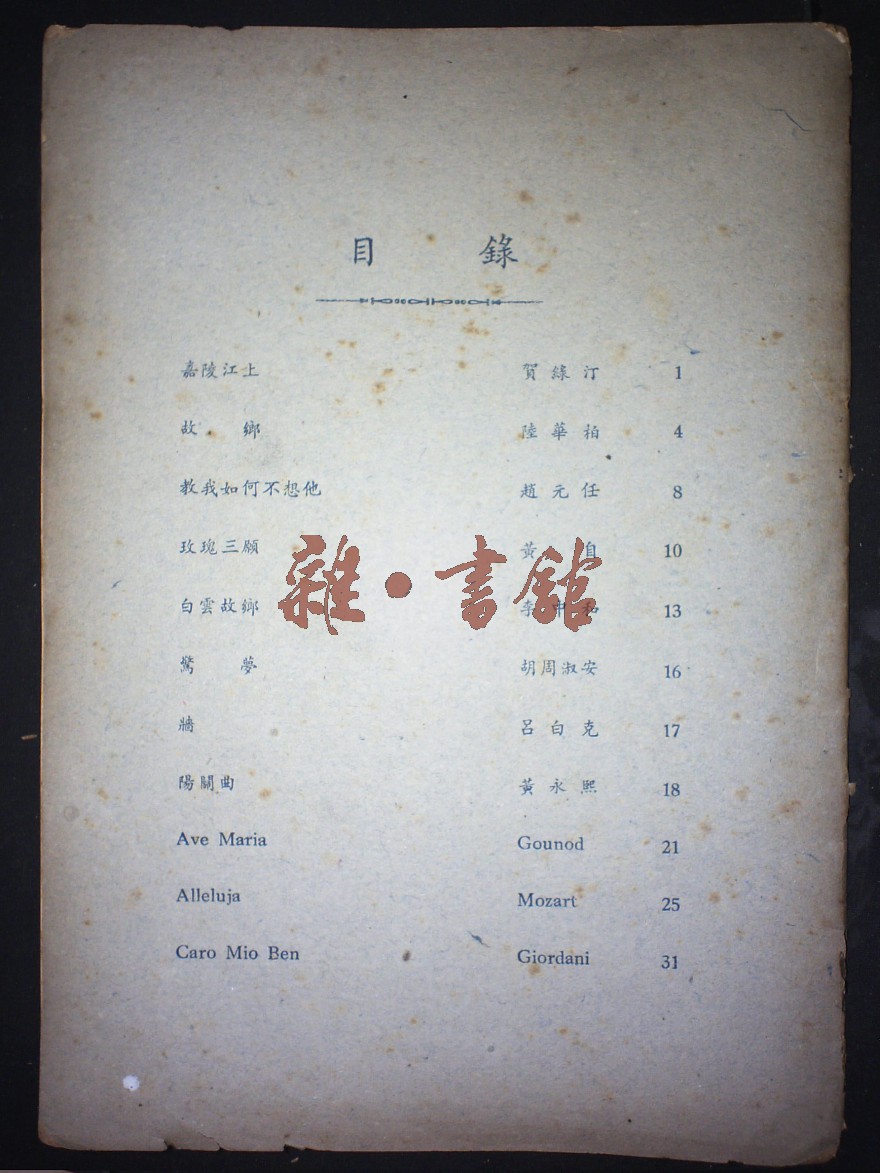 目 錄
嘉陵江上 賀綠汀 1
故鄉 陸華柏 4
教我如何不想他 趙元任 8
玫瑰三願 黃自 10
白雲故鄉 李中和 13
驚夢 胡周淑安 16
牆 呂白克 17
陽關曲 黃永熙 18
Ave Maria Gounod 21
Alleluja Mozart 25
Caro Mio Ben Giordani 31
雜·書館